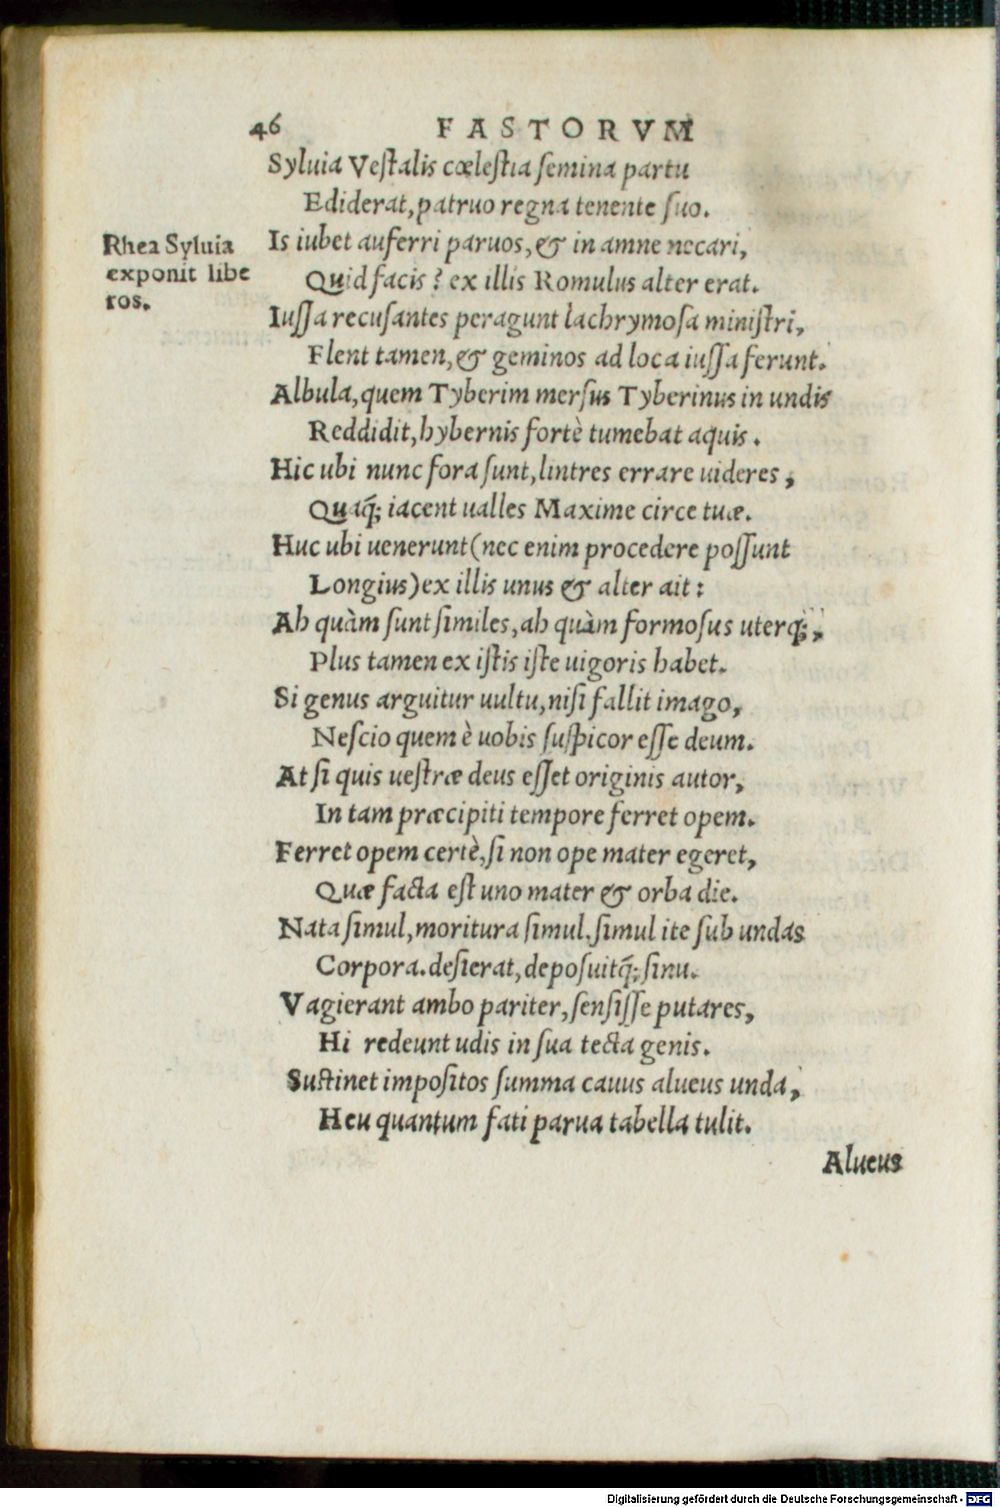 46 FASTORVM
Syluia Vestalis cœlestia semina partu
Ediderat, patruo regna tenente suo.
Rhea Syluia
exponit libe
ros.
Is iubet auferri paruos, & in amne necari,
Quid facis? ex illis Romulus alter erat.
Iussa recusantes peragunt lachrymosa ministri,
Flent tamen, & geminos ad loca iussa ferunt.
Albula, quem Tyberim mersus Tyberinus in undis
Reddidit, hybernis fortè tumebat aquis.
Hic ubi nunc fora sunt, lintres errare uideres,
Quaq́; iacent ualles Maxime circe tuæ.
Huc ubi uenerunt (nec enim procedere possunt
Longius) ex illis unus & alter ait:
Ah quàm sunt similes, ah quàm formosus uterq;,
Plus tamen ex istis iste uigoris habet.
Si genus arguitur uultu, nisi fallit imago,
Nescio quem è uobis suspicor esse deum.
At si quis uestræ deus esset originis autor,
In tam præcipiti tempore ferret opem.
Ferret opem certè, si non ope mater egeret,
Quæ facta est uno mater & orba die.
Nata simul, moritura simul, simul ite sub undas
Corpora. desierat, deposuitq́; sinu.
Vagierant ambo pariter, sensisse putares,
Hi redeunt udis in sua tecta genis.
Sustinet impositos summa cauus alueus unda,
Heu quantum fati parua tabella tulit.
Alueus
Digitalisierung gefördert durch die Deutsche Forschungsgemeinschaft - DFG